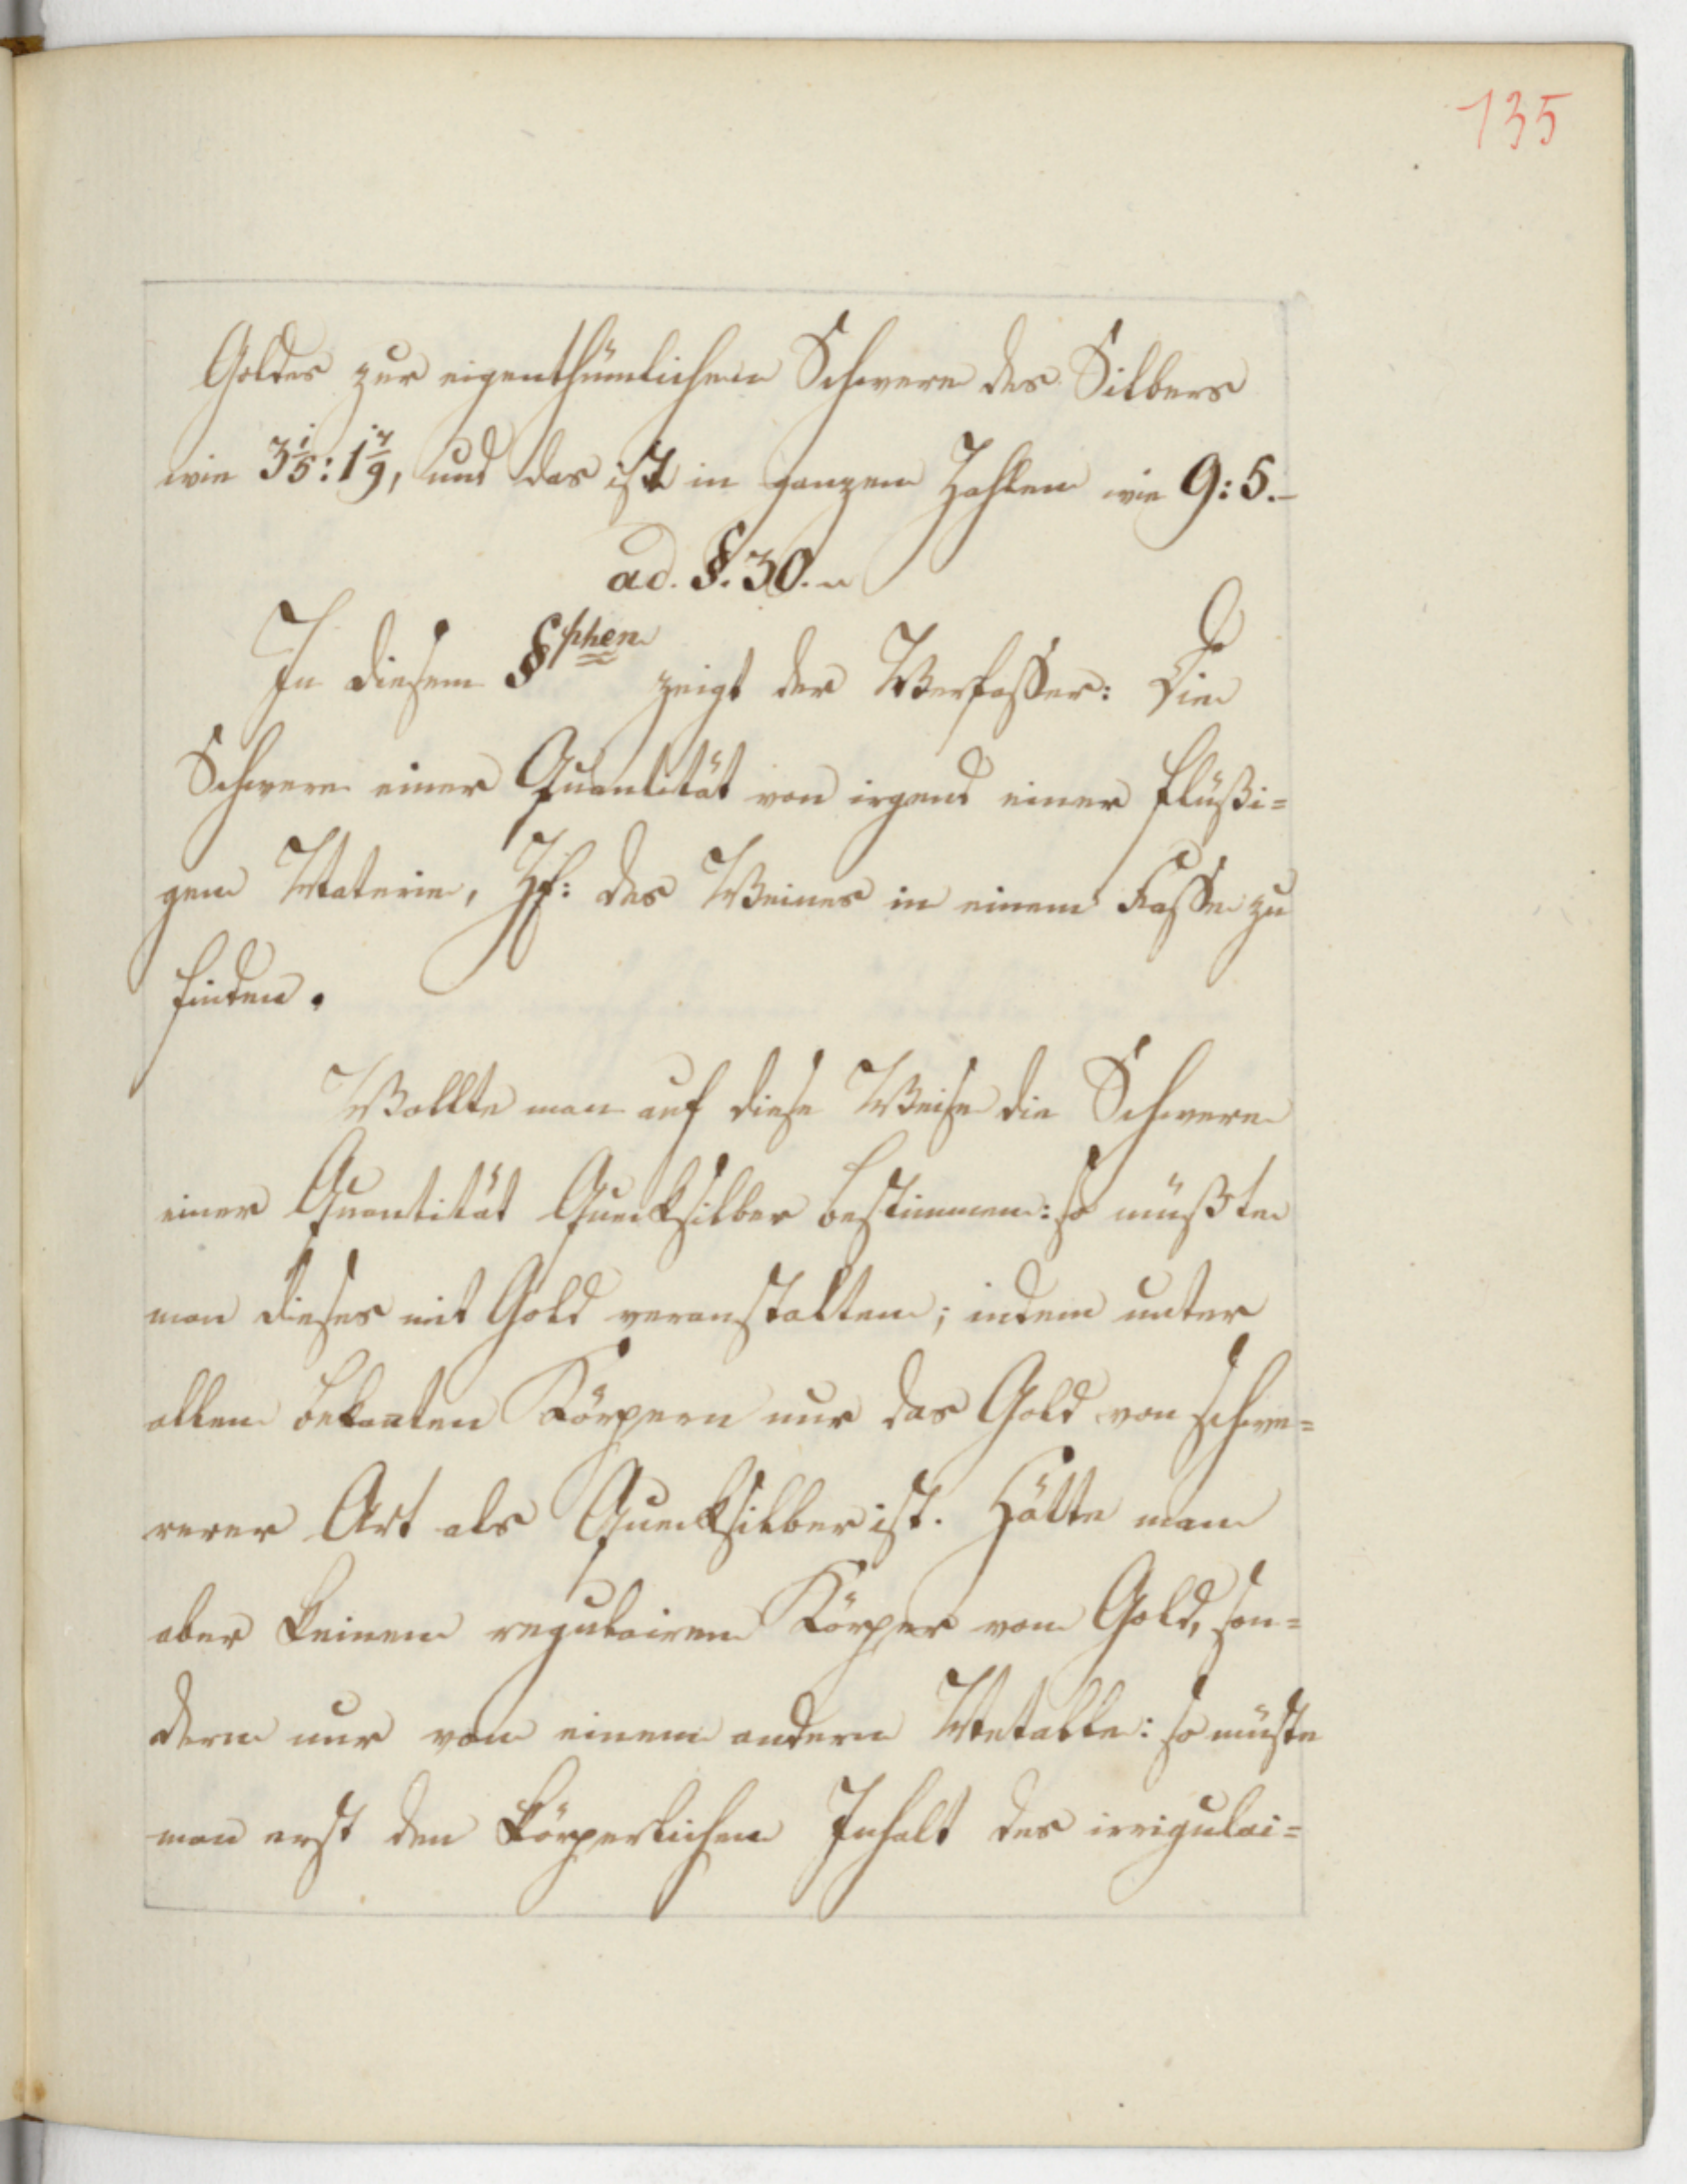 135
Goldes zur eigenthümlichen Schwere des Silbers
wie 3 1/5 : 1 7/9, und das ist in ganzen Zahlen wie 9:5.–
ad. §. 30.
In diesem §phen zeigt der Verfaßer: Die
Schwere einer Quantität von irgend einer flüßi=
gen Materie, Zf: des Weines in einem Faße zu
finden.
Wollte man auf diese Weise die Schwere
einer Quantität Quecksilber bestimmen: so müßte
man dieses mit Gold veranstalten; indem unter
allen bekanten Körpern nur das Gold von schwe=
rerer Art als Quecksilber ist. Hätte man
aber keinen regulairen Körper von Gold, son=
dern nur von einem andern Metalle: so müste
man erst den körperlichen Inhalt des irrigulai=